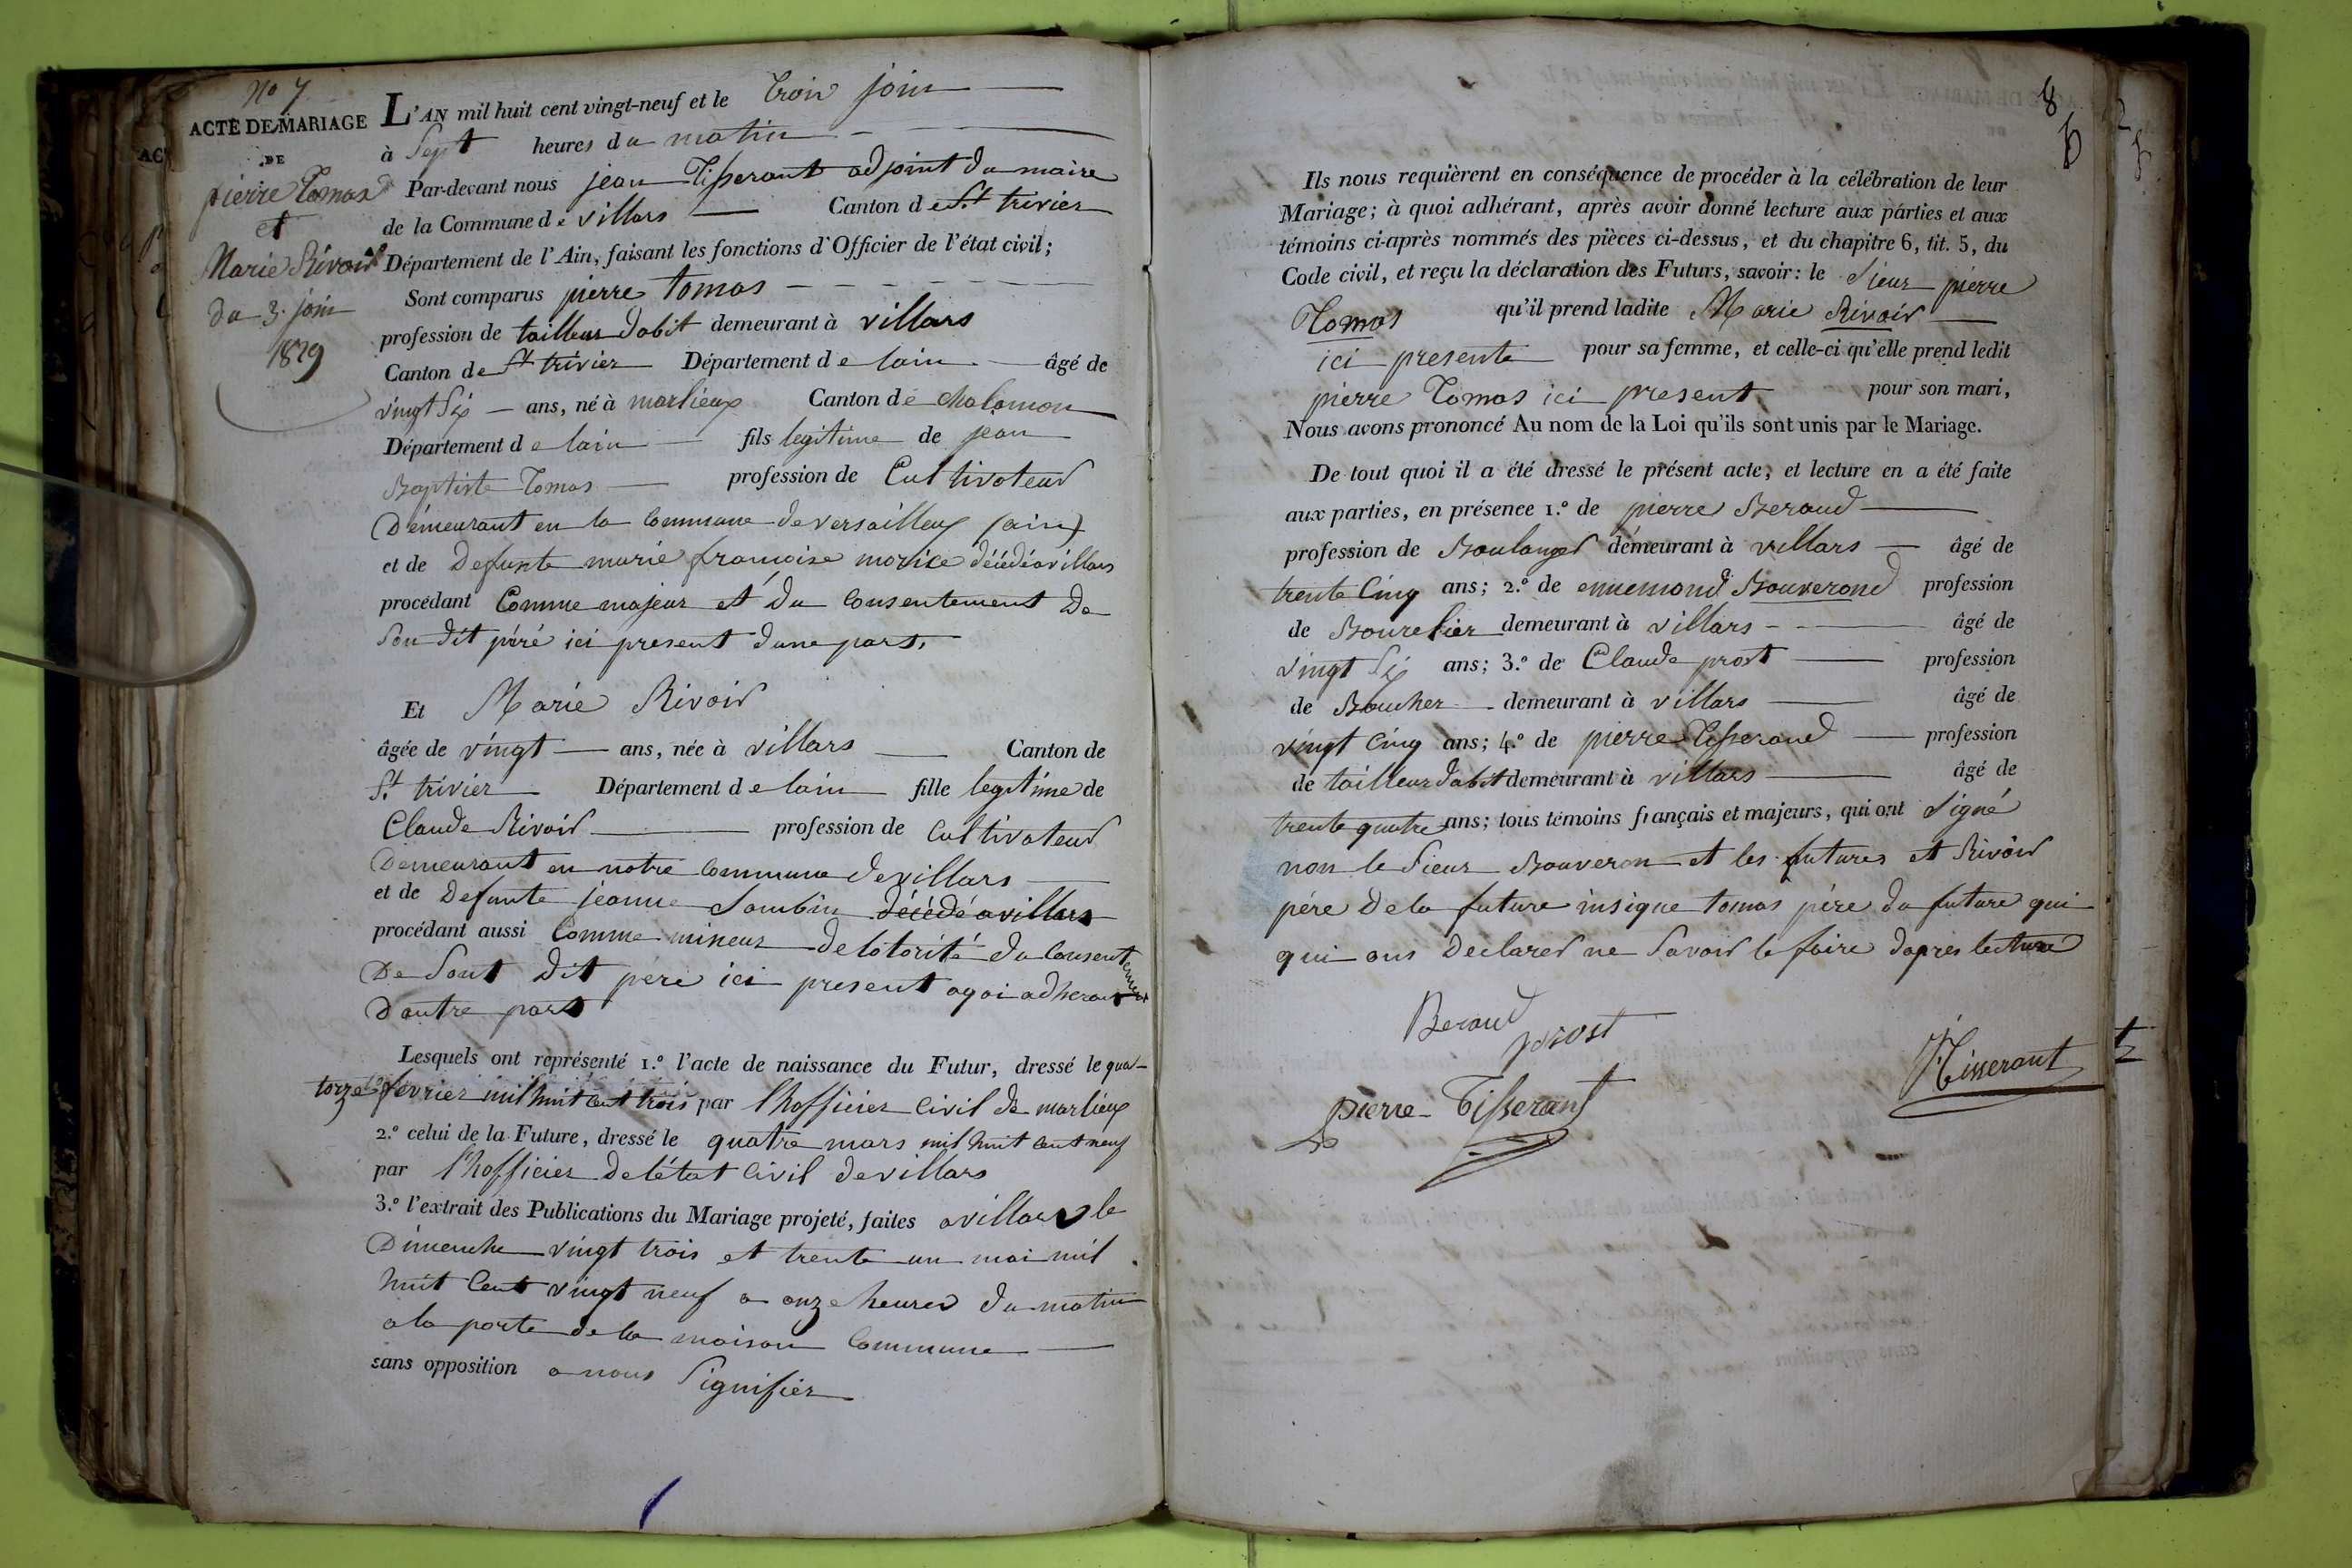 No 7
ACTE DE MARIAGE
DE
pierre Tomas
et
Marie Rivoir
du 3. join
1829
L'AN mil huit cent vingt-neuf et le trois join
à Sept heures du matin
Par-devant nous jean Tisserant adjoint du maire
de la Commune de villars Canton de St trivier
Département de l'Ain, faisant les fonctions d'Officier de l'état civil;
Sont comparus pierre tomas
profession de tailleur dabit demeurant à villars
Canton de St trivier Département de lain âgé de
vingt Six ans, né à marlieux Canton de chalamon
Département de lain fils legitime de jean
Baptiste Tomas profession de Cultivateur
Demeurant en la commune de versailleux (ain)
et de Defunte marie francoise morice décédé a villars
procédant Comme majeur et du Consentement de
Son dit péré ici present dune part,
Et Marie Rivoir
âgée de vingt ans, née à villars Canton de
St. trivier Département de lain fille legitime de
Claude Rivoir profession de Cultivateur
Demeurant en notre commune de villars
et de Defunte jeanne Sambin décédé a villars
procédant aussi Comme mineur de lotorité du Consentement
De Sont dit pere ici present aqoi adherant
Dautre part
Lesquels ont représenté 1.º l'acte de naissance du Futur, dressé le qua-
torze fevrier mil huit cent trois par lhofficier Civil de marlieux
2.º celui de la Future, dressé le quatre mars mil huit cent neuf
par lhofficier de létat Civil de villars
3.º l'extrait des Publications du Mariage projeté, faites a villars le
Dimenche vingt trois et trente un mai mil
huit Cent vingt neuf a onze heures du matin
a la porte de la maison Commune
sans opposition a nous Signifier
8
Ils nous requièrent en conséquence de procéder à la célébration de leur
Mariage; à quoi adhérant, après avoir donné lecture aux parties et aux
témoins ci-après nommés des pièces ci-dessus, et du chapitre 6, tit. 5, du
Code civil, et reçu la déclaration des Futurs, savoir: le Sieur pierre
Tomas qu'il prend ladite Marie Rivoir
ici presente pour sa femme, et celle-ci qu'elle prend ledit
pierre Tomas ici present pour son mari,
Nous avons prononcé Au nom de la Loi qu'ils sont unis par le Mariage.
De tout quoi il a été dressé le présent acte, et lecture en a été faite
aux parties, en présence 1.º de pierre Beraud
profession de Boulanger demeurant à villars âgé de
trente Cinq ans; 2.º de ennemond Bouverond profession
de Bourelier demeurant à villars âgé de
vingt Six ans; 3.º de Claude prost profession
de Boucher demeurant à villars âgé de
vingt Cinq ans; 4.º de pierre Tisserand profession
de tailleur dabit demeurant à villars âgé de
trente quatre ans; tous témoins français et majeurs, qui ont Signé
non le Sieur Bouveron et les futures et Rivoir
pére de la future insique tomas pére du future qui
qui ons Declarer ne Savoir le faire dapres lecture
Beraud
prost
J. Tisserant
pierre Tisserant